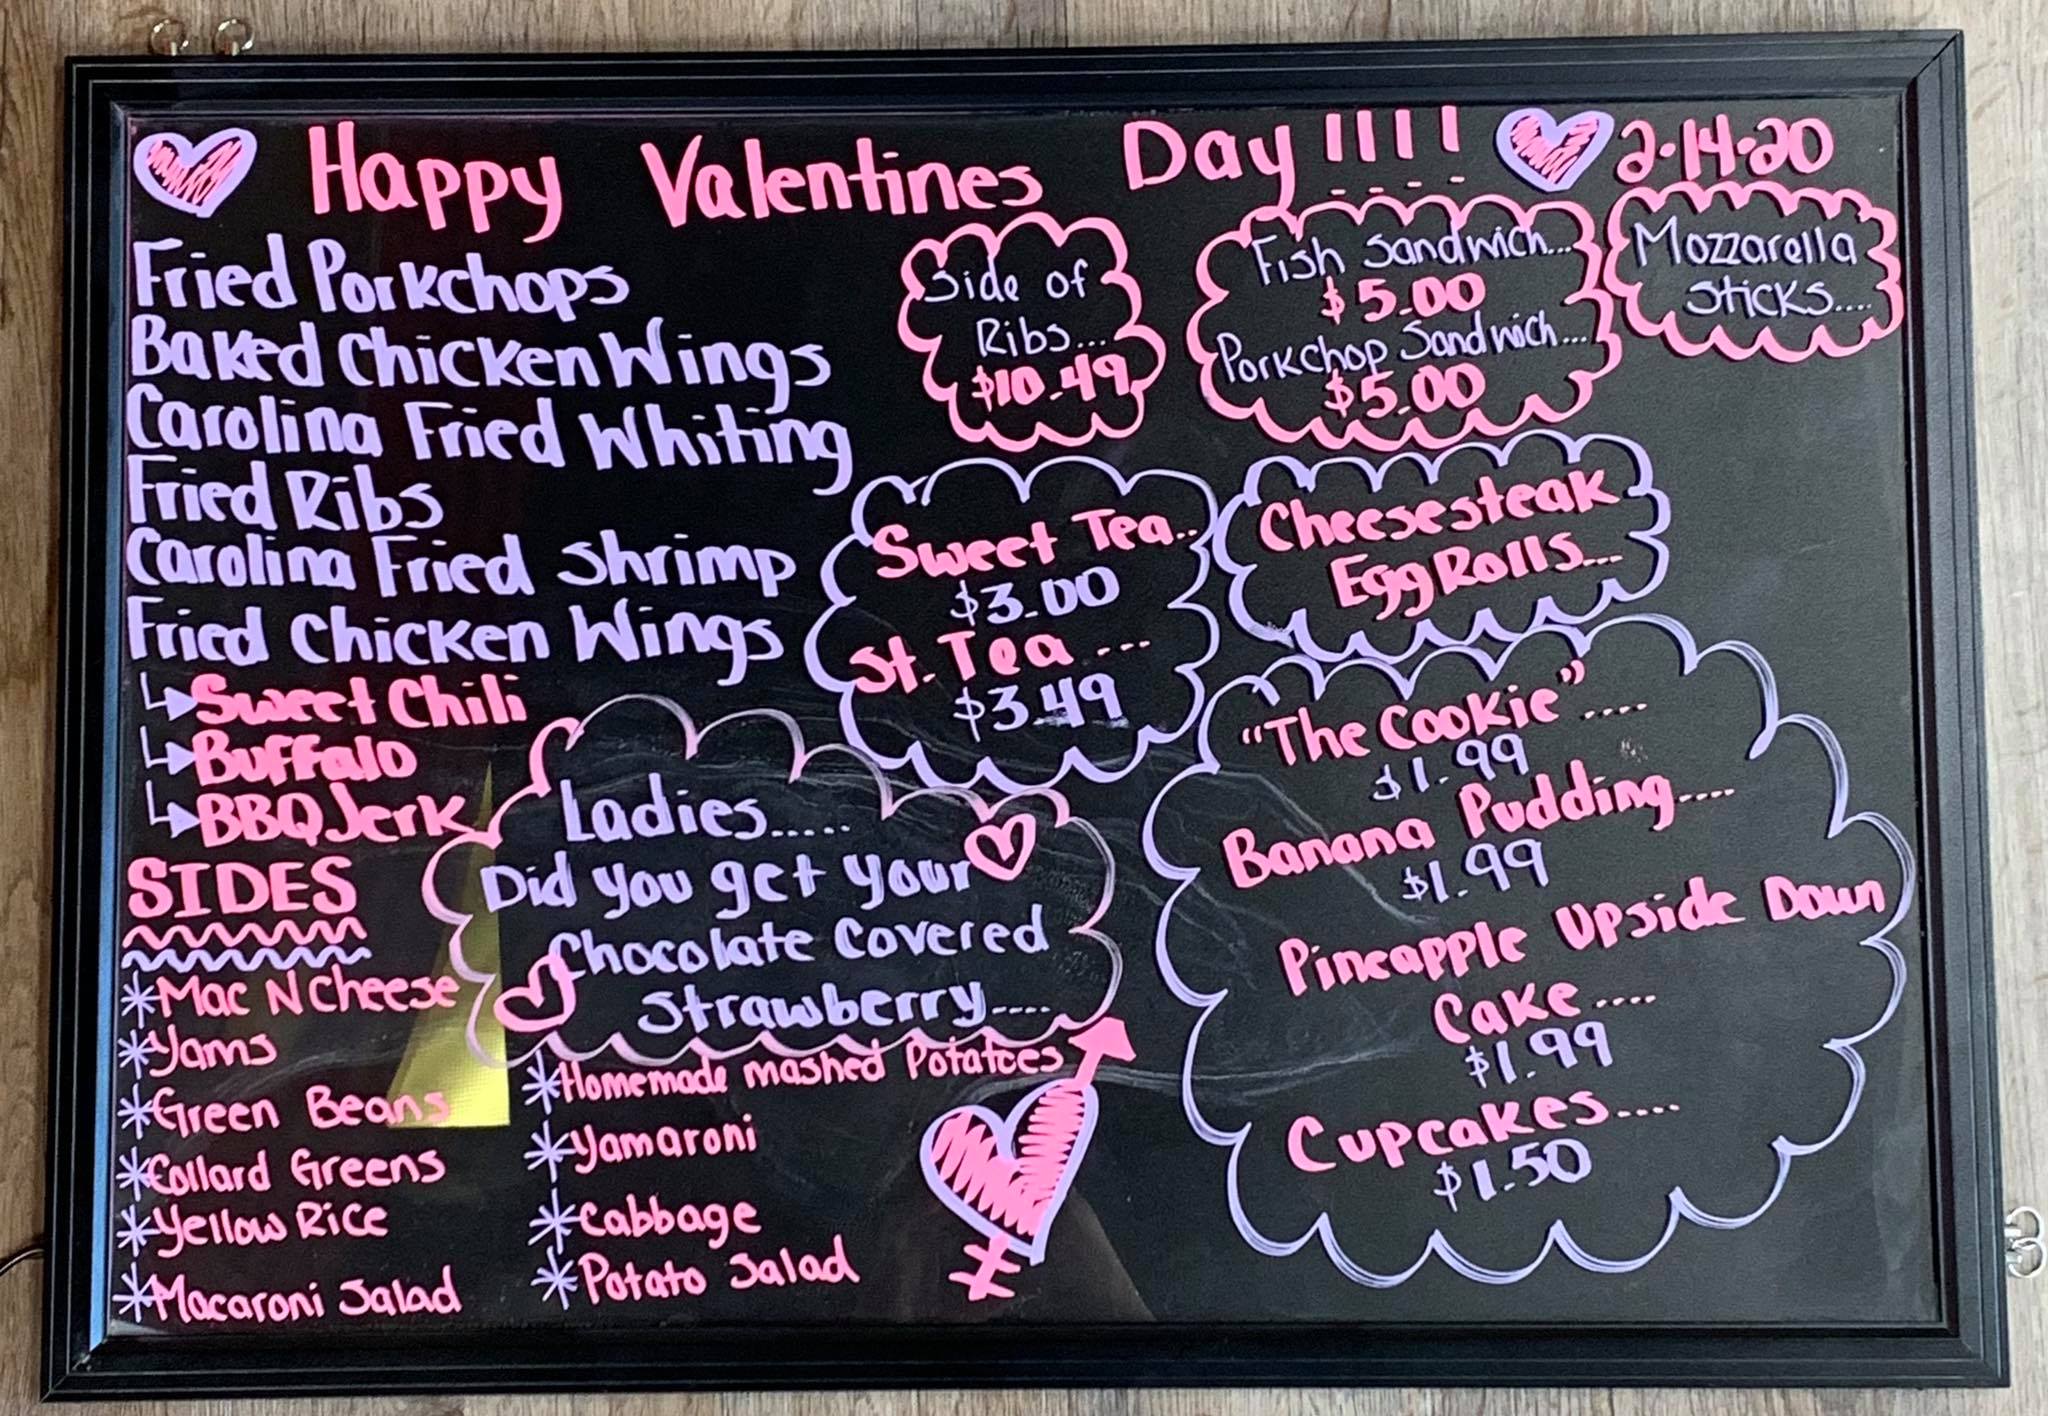 Happy Valentines Day!!!! 2.14.20
Fried Porkchops
Baked Chicken Wings
Carolina Fried Whiting
Fried Ribs
Carolina Fried Shrimp
Fried Chicken Wings
Sweet Chili
Buffalo
BBQ Jerk
SIDES
*Mac N Cheese
*Yams
*Green Beans
*Collard Greens
*Yellow Rice
*Macaroni Salad
*Homemade mashed Potatoes
*Yamaroni
*Cabbage
*Potato Salad
Ladies.....
Did you get your
Chocolate Covered
Strawberry....
Side of
Ribs...
$10.49
Sweet Tea..
$3.00
St. Tea ...
$3.49
Fish Sandwich...
$5.00
Porkchop Sandwich...
$5.00
Mozzarella
Sticks....
Cheesesteak
Egg Rolls...
"The Cookie"....
$1.99
Banana Pudding....
$1.99
Pineapple Upside Down
Cake....
$1.99
Cupcakes....
$1.50